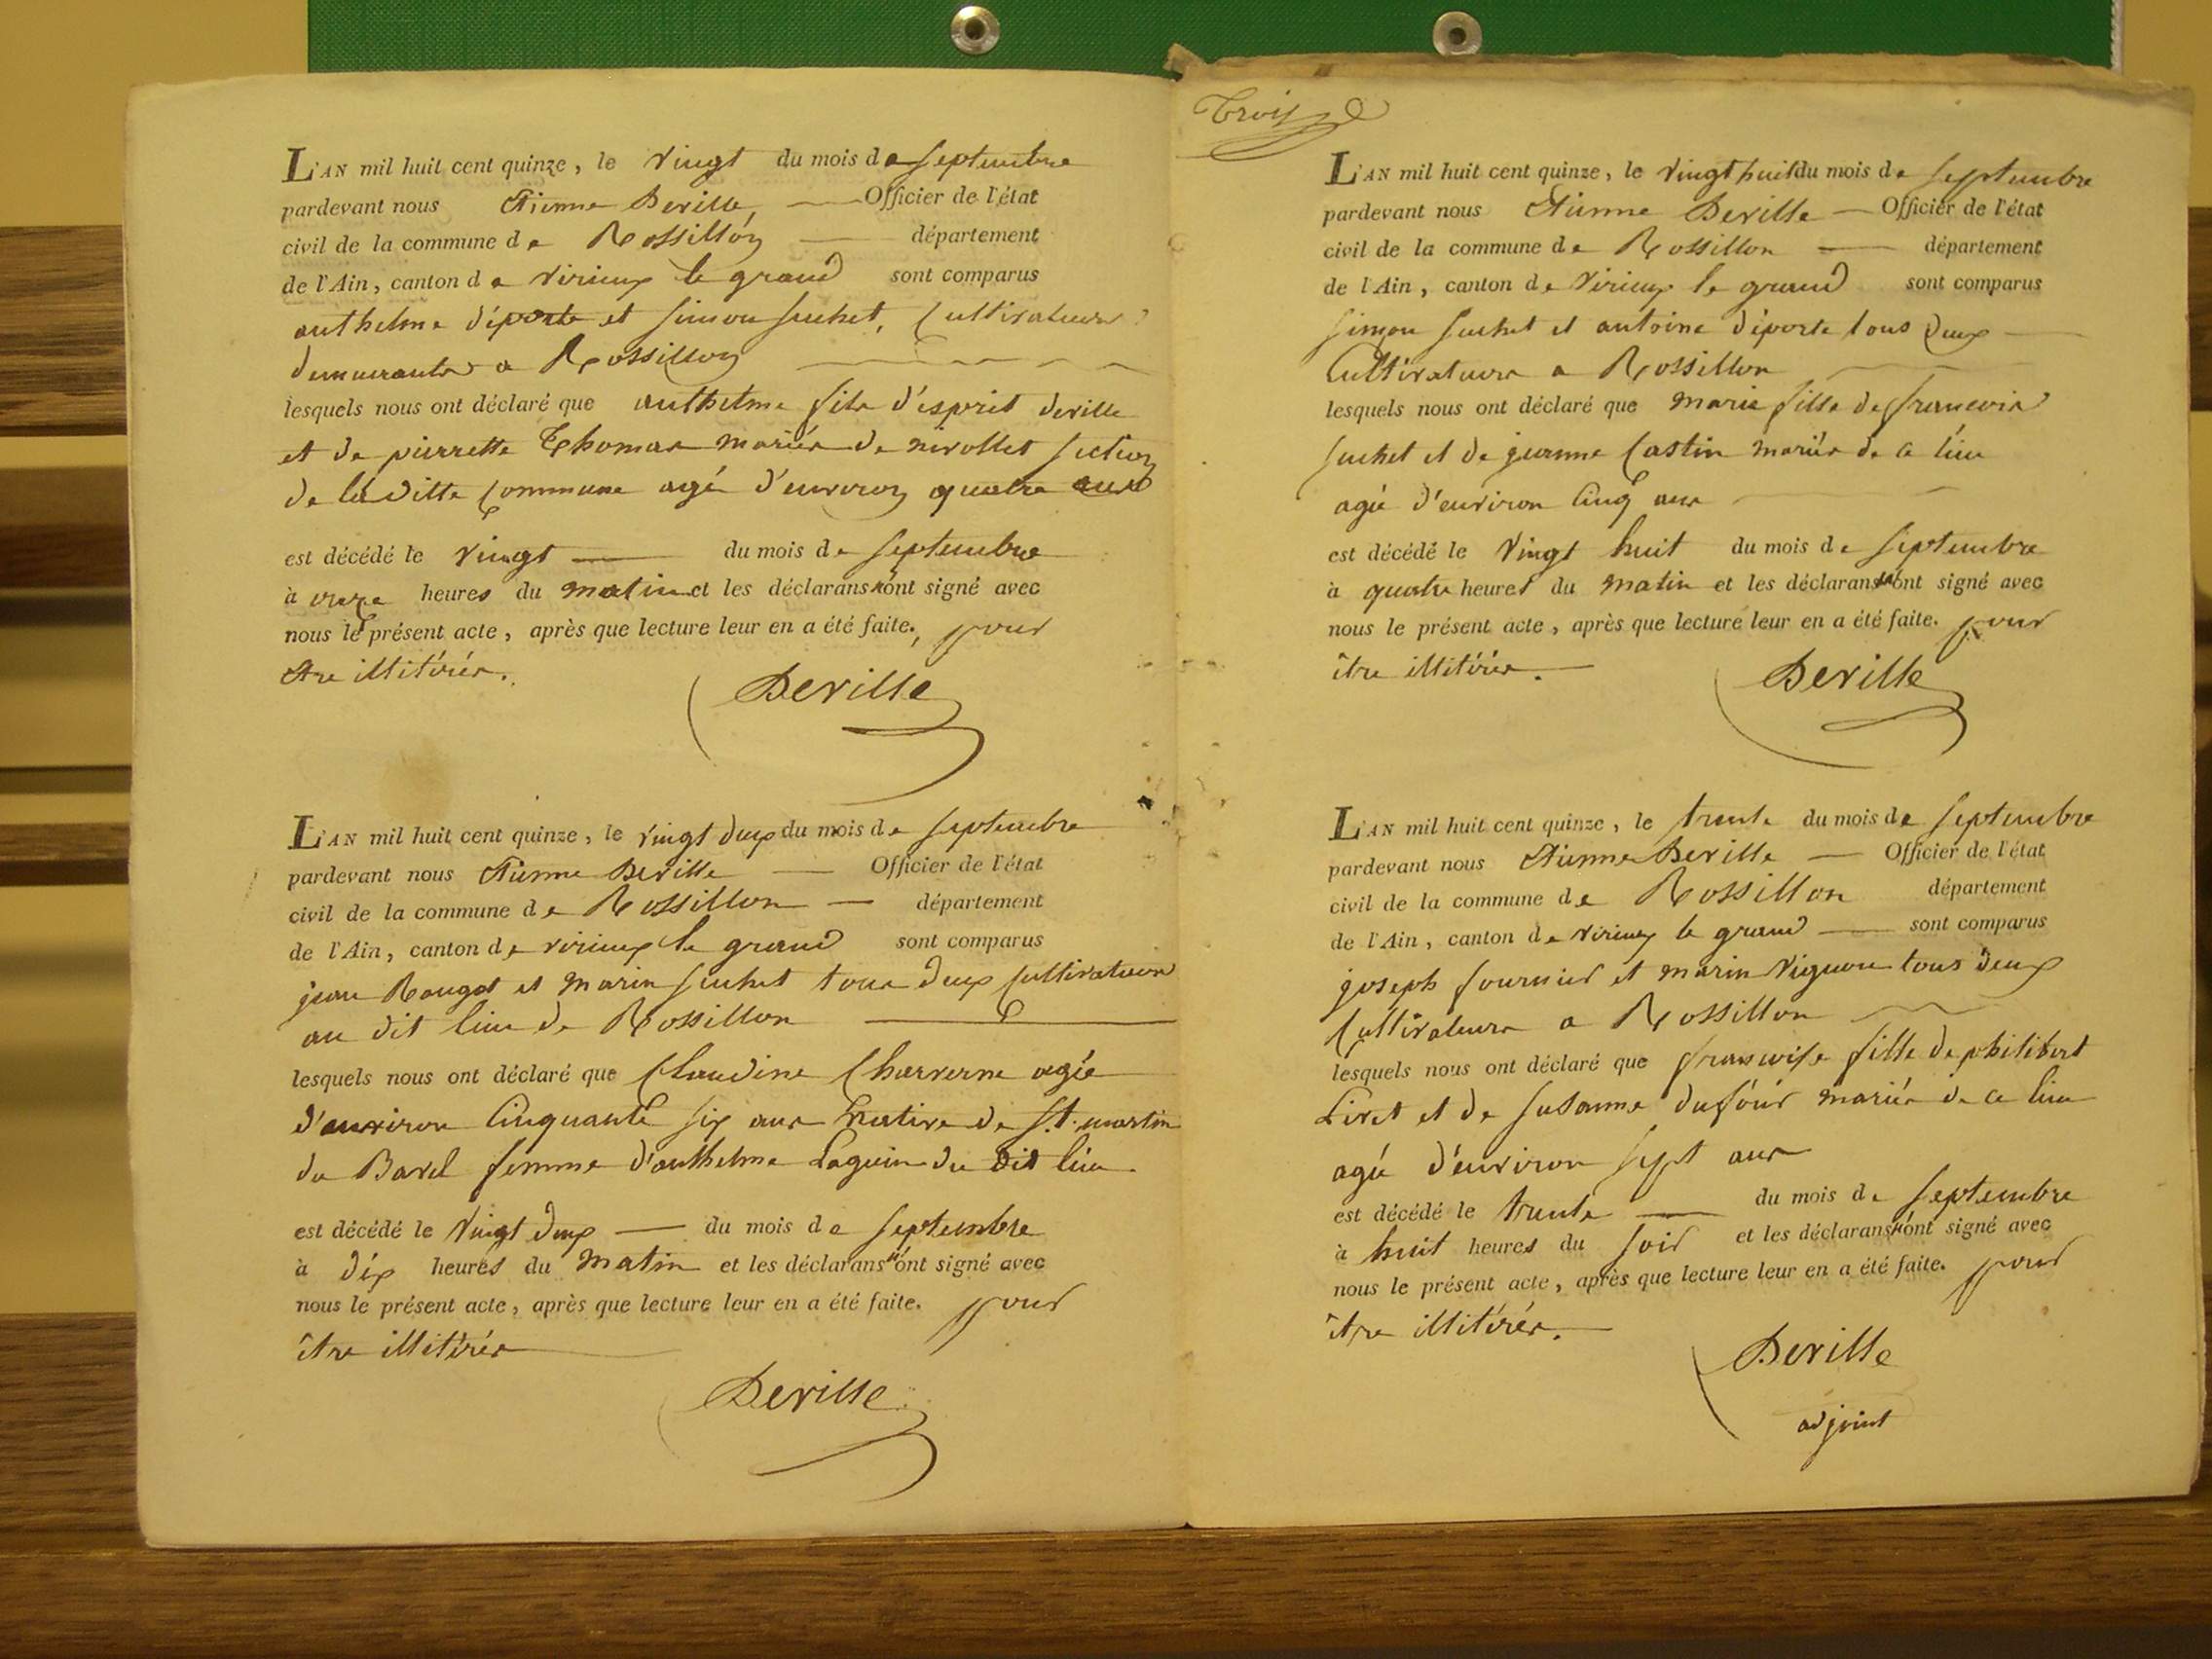 L'AN mil huit cent quinze, le vingt du mois de septembre
pardevant nous Etienne Deville, — Officier de l'état
civil de la commune de Rossillon — département
de l'Ain, canton de virieux le grand sont comparus
anthelme déporte et simon suchet, Cultivateurs
demeurants a Rossillon
lesquels nous ont déclaré que anthelme fils d'esprit deville
et de pierrette Thomas mariés de nivollet section
de la ditte Commune agé d'environ quatre ans
est décédé le vingt — du mois de septembre
à onze heures du matin et les déclarans n'ont signé avec
nous le présent acte, après que lecture leur en a été faite., pour
etre illitérés.
Deville
L'AN mil huit cent quinze, le vingt deux du mois de septembre
pardevant nous Etienne Deville — Officier de l'état
civil de la commune de Rossillon — département
de l'Ain, canton de virieux le grand sont comparus
jean Rougot et marin suchet tous deux Cultivateurs
au dit lieu de Rossillon
lesquels nous ont déclaré que Claudine Charverne agée
d'environ Cinquante six ans native de St. martin
de Bavel femme d'anthelme Laguin du dit lieu.
est décédé le vingt deux — du mois de septembre
à dix heures du matin et les déclarans n'ont signé avec
nous le présent acte, après que lecture leur en a été faite. pour
être illitérés
Deville
Trois
L'AN mil huit cent quinze, le vingt huit du mois de septembre
pardevant nous Etienne Deville — Officier de l'état
civil de la commune de Rossillon — département
de l'Ain, canton de virieux le grand sont comparus
simon suchet et antoine déporte tous deux
Cultivateurs a Rossillon
lesquels nous ont déclaré que marie fille de francois
suchet et de jeanne Castin mariés de ce lieu
agée d'environ Cinq ans
est décédé le vingt huit du mois de septembre
à quatre heures du matin et les déclarans n'ont signé avec
nous le présent acte, après que lecture leur en a été faite. pour
être illitérés.
Deville
L'AN mil huit cent quinze, le trente du mois de septembre
pardevant nous Etienne Deville — Officier de l'état
civil de la commune de Rossillon département
de l'Ain, canton de virieux le grand — sont comparus
joseph fournier et marin vignon tous deux
Cultivateurs a Rossillon
lesquels nous ont déclaré que francoise fille de philibert
Livet et de susanne dufour mariés de ce lieu
agée d'environ sept ans
est décédé le trente — du mois de septembre
à huit heures du soir et les déclarans n'ont signé avec
nous le présent acte, après que lecture leur en a été faite. pour
être illitérés.
Deville
adjoint